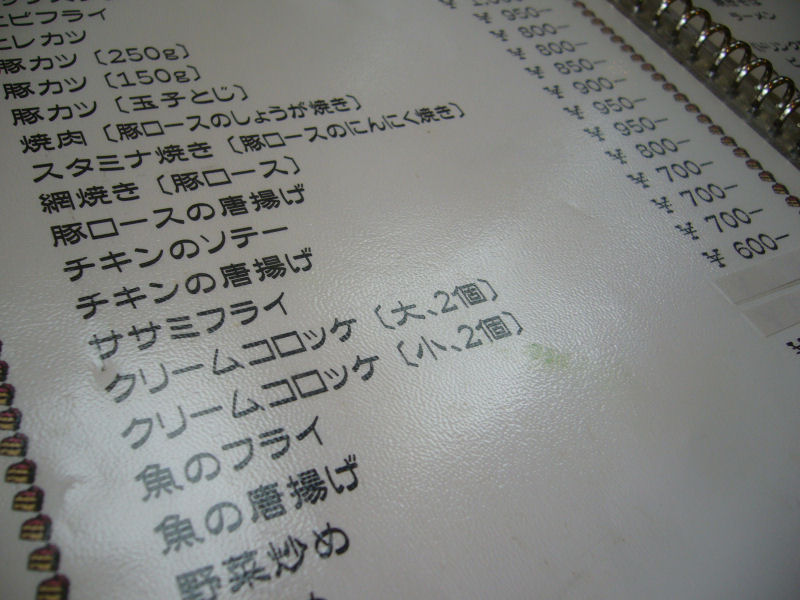 エビフライ
ヒレカツ
豚カツ〔250g〕
豚カツ〔150g〕
豚カツ〔玉子とじ〕
焼肉〔豚ロースのしょうが焼き〕
スタミナ焼き〔豚ロースのにんにく焼き〕
網焼き〔豚ロース〕
豚ロースの唐揚げ
チキンのソテー
チキンの唐揚げ
ササミフライ
クリームコロッケ〔大、2個〕
クリームコロッケ〔小、2個〕
魚のフライ
魚の唐揚げ
野菜炒め
¥ 950−
¥ 800−
¥ 800−
¥ 850−
¥ 900−
¥ 950−
¥ 950−
¥ 800−
¥ 700−
¥ 700−
¥ 700−
¥ 600−
ラーメン